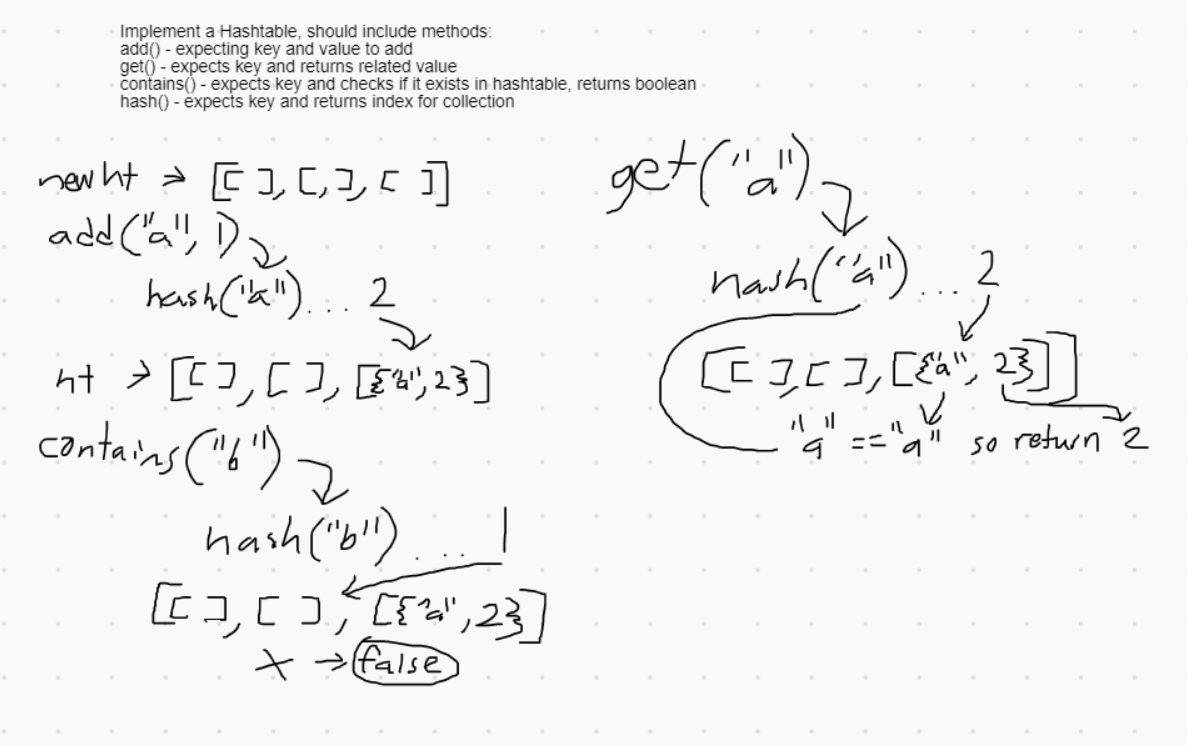 Implement a Hashtable, should include methods:
add() - expecting key and value to add
get() - expects key and returns related value
contains() - expects key and checks if it exists in hashtable, returns boolean
hash() - expects key and returns index for collection
new ht → [[ ], [,], [ ]]
add("a", 1)
hash("a")... 2
ht → [[ ], [ ], [{"a", 2}]
contains("b")
hash("b")... 1
[[ ], [ ], [{"a", 2}]
x → false
get("a")
hash("a")... 2
[[ ], [ ], [{"a", 2}]]
"a" == "a" so return 2